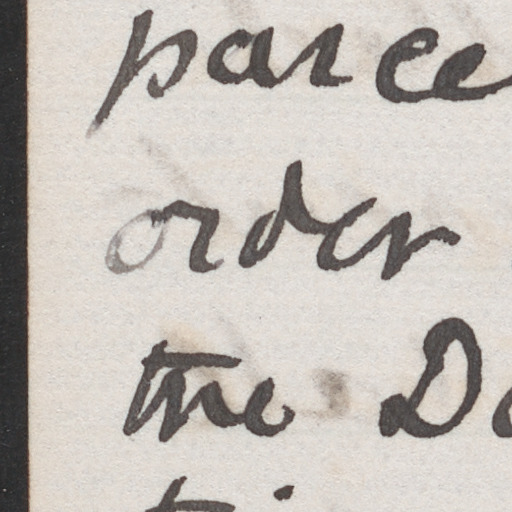 parce
order
the Do
ti